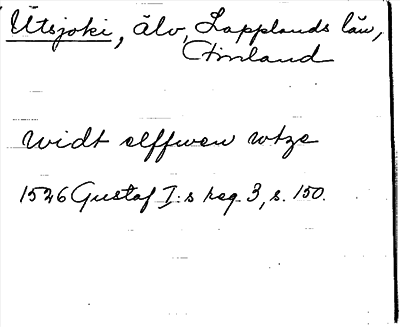 Utsjoki, älv, Lapplands län,
Finland
widt elffwen wtze
1526 Gustaf I:s reg. 3, s. 150.